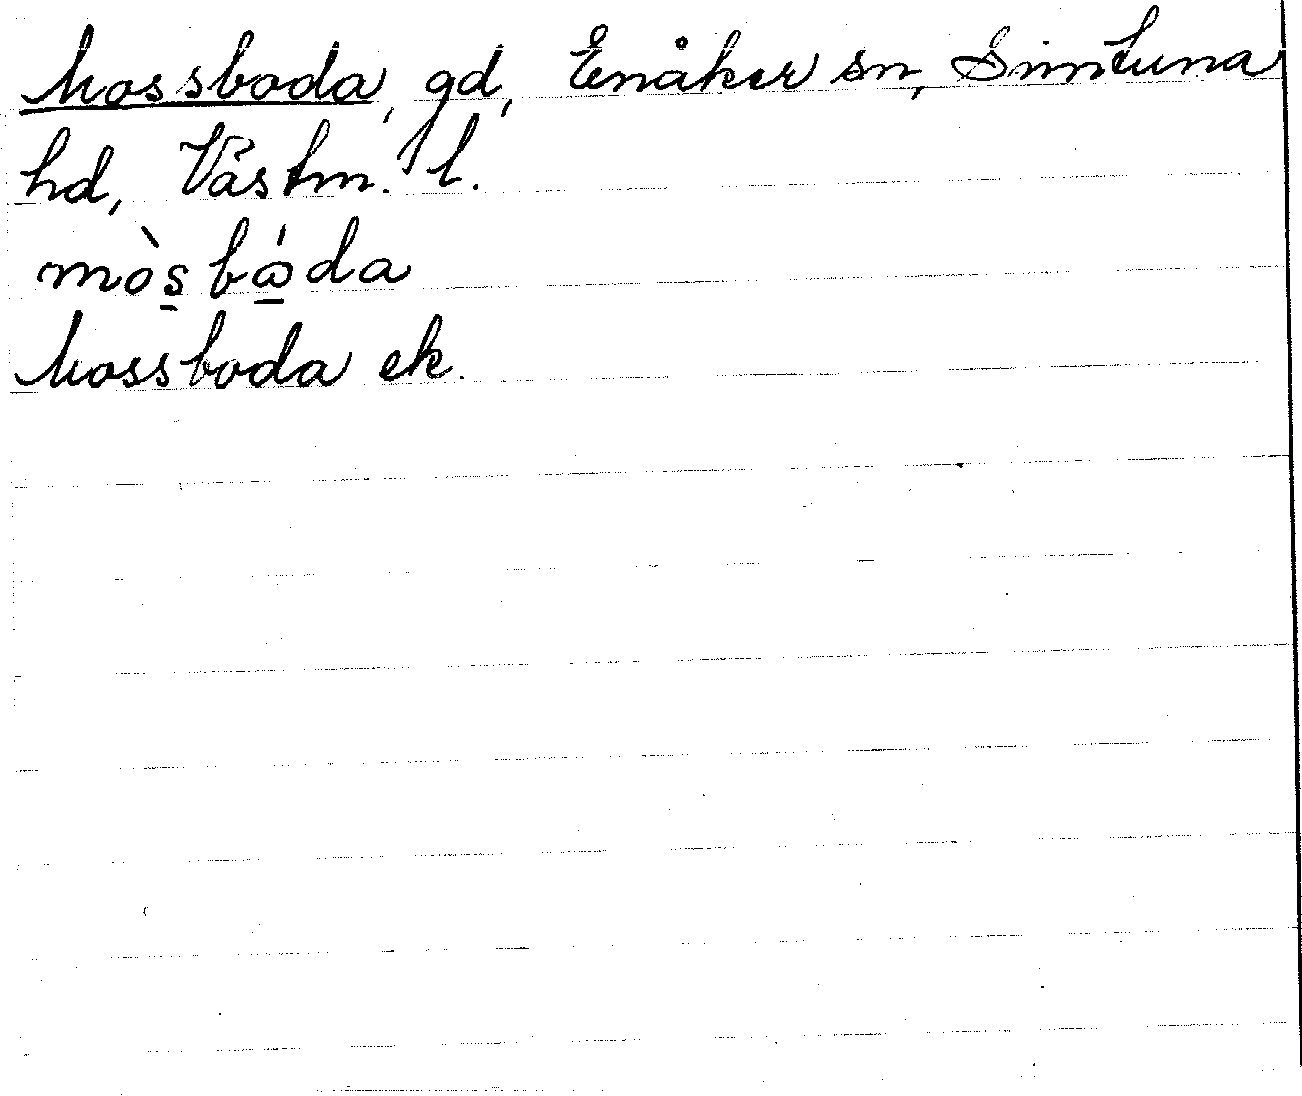 Mossboda, gd, Enåker sn, Simtuna
hd, Västm. l.
mòs̲bώ̲da
Mossboda ek.